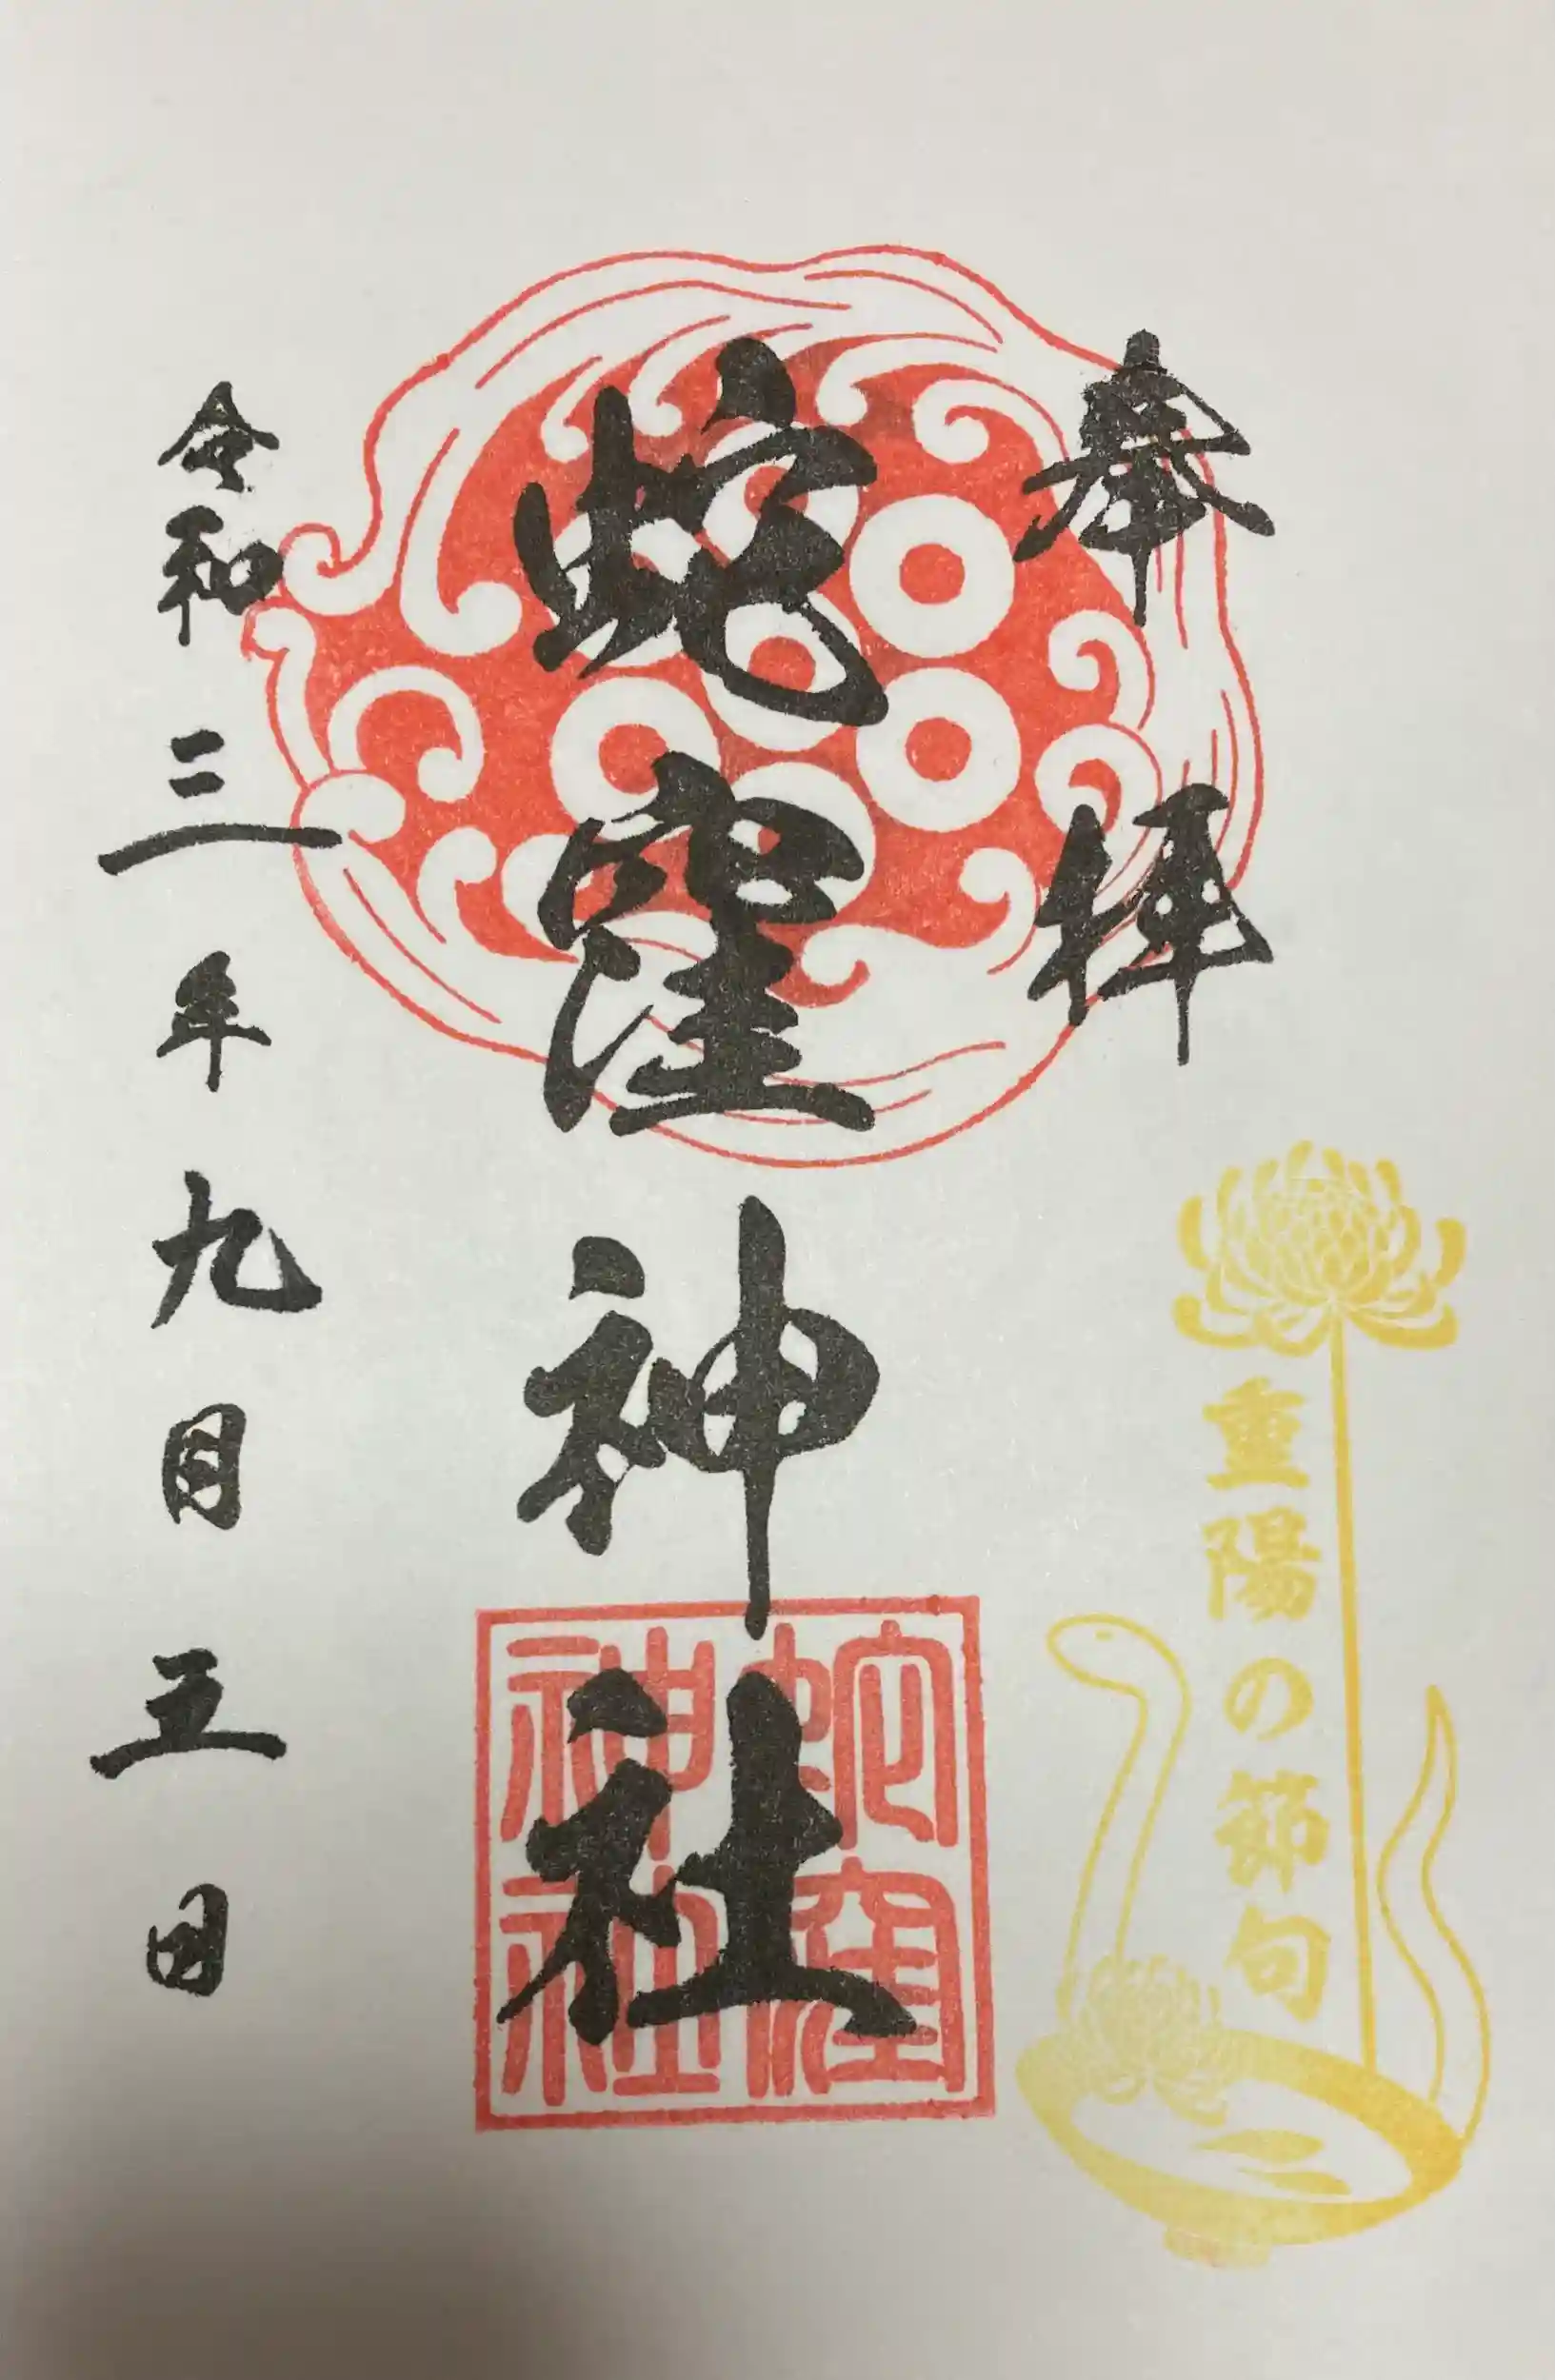 奉拝
重陽の節句
蛇窪神社
蛇窪
神社
令和三年九月五日